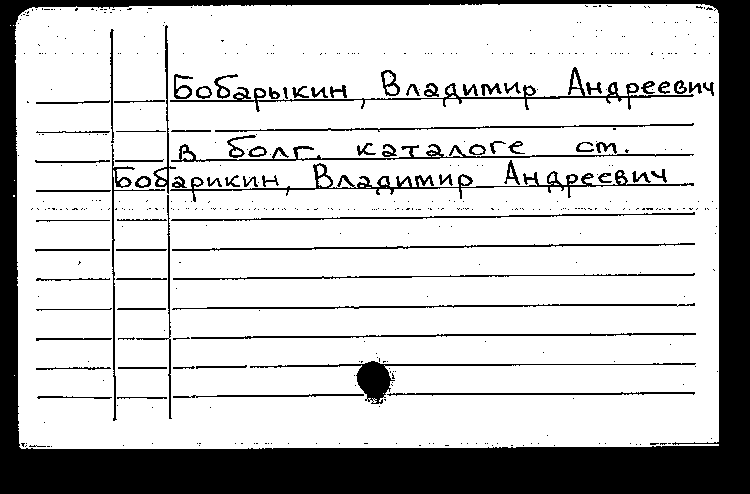 Бобарыкин, Владимир Андреевич
в болг. каталоге ст.
Бобарикин, Владимир Андреевич